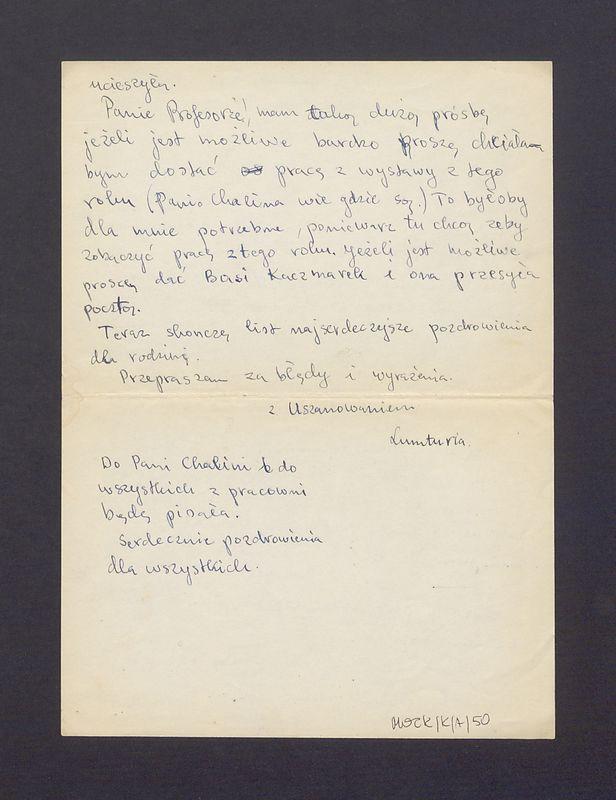 ucieszyła.
Panie Profesorze', mam taką dużą prósbę
jeżeli jest możliwe bardzo proszę chciała
bym dostać pracę z wystawy z tego
roku (Pani Chalina wie gdzie są.) To byłoby
dla mnie potrzebne, poniewarz tu chcą zeby
zobaczyć pracę z tego roku. Jeżeli jest możliwe
proszę dać Basi Kaczmarek i ona przesyła
pocztą.
Teraz skonczę list najserdeczyjsze pozdrowienia
dla rodzinę.
Przepraszam za błędy i wyrażenia.
z Uszanowaniem
Lumturia.
Do Pani Chalini i do
wszystkich z pracowni
będę pisała!
Serdecznie pozdrowienia
dla wszystkich.
MOZK/K/A/50